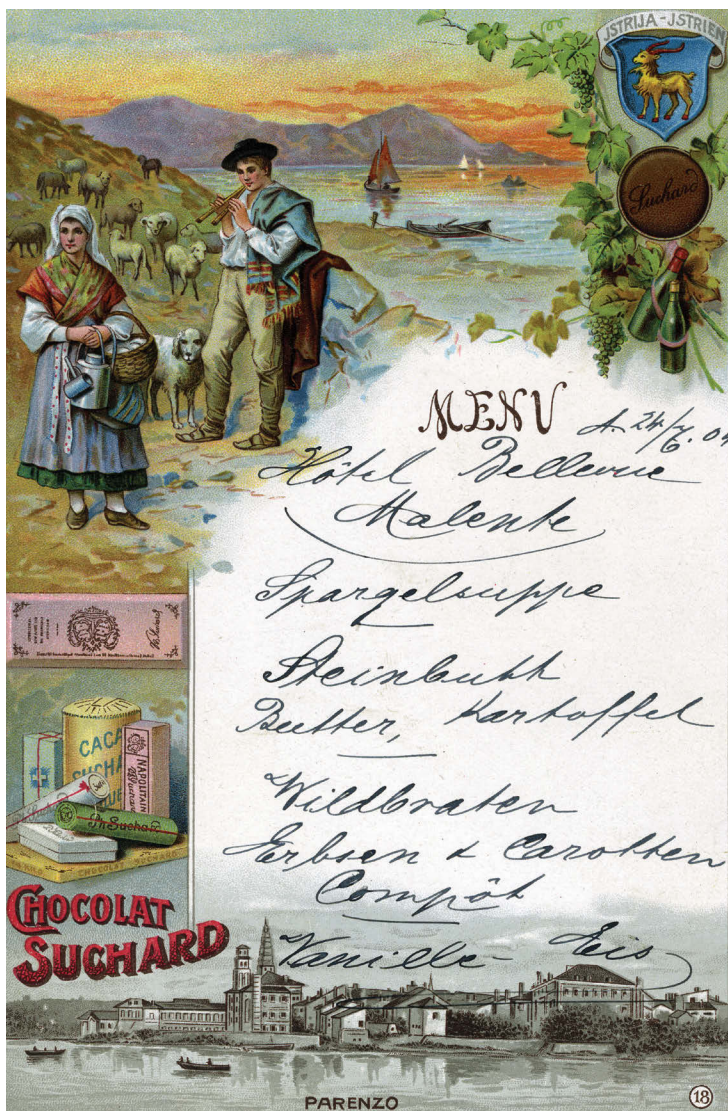 JSTRIJA - JSTRIEN
Suchard
MENU
d. 24/7. 04
Hôtel Bellevue
Malente
Spargelsuppe
Steinbutt
Butter, Kartoffel
Wildbraten
Erbsen & Carotten
Compôt
Vanille - Eis
CACA
SUCHA
NAPOLITAIN
Ph. Suchard
CHOCOLAT SUCHARD
CHOCOLAT
SUCHARD
PARENZO
18